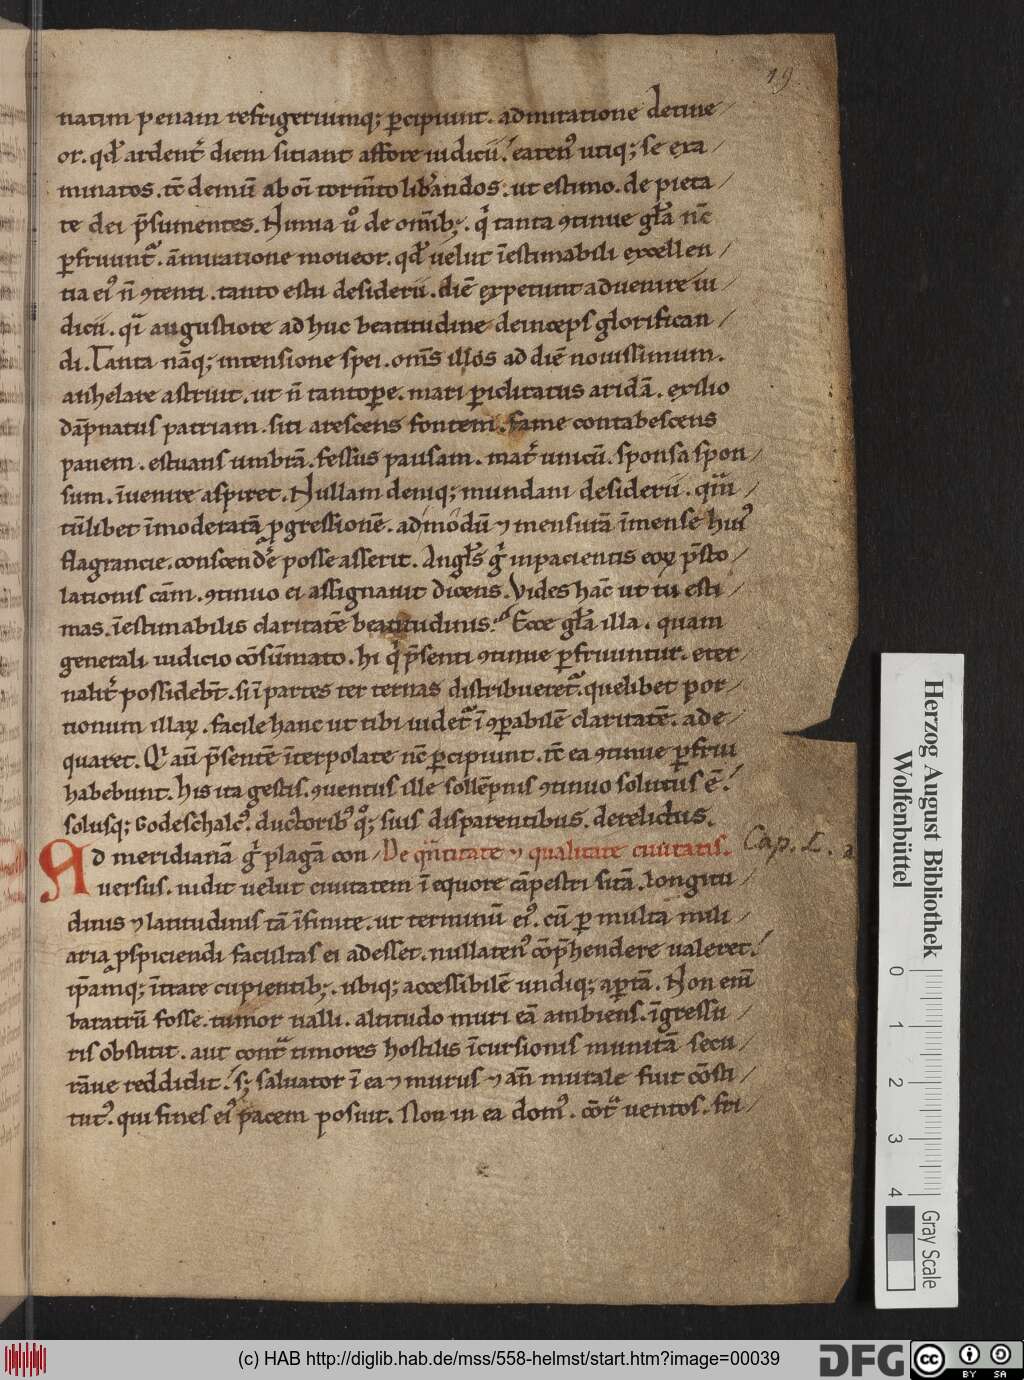 19
natim penam refrigeriumq; ꝑcipiunt. admiratione detine/
or. qđ ardent̾ diem sitiant affore iudicii! eaten᾽ utiq; se exa/
minatos. tc̄ demū ab oī torm̄to lib̾andos. ut estimo. de pieta/
te dei p̄sumentes. Nimia ů de om̄ib;. q̇ tanta ꝯtinue gl̄a nc̄
ꝑfruunt᷑. āmiratione moueor. qđ uelut īestimabili excellen/
tia ei᾽ n̄ ꝯtenti. tanto estu desiderii. diē expetunt aduenire iu/
dicii. qī augustiore adhuc beatitudine deinceps glorifican/
di. Tanta nāq; intensione spei. om̄s illos ad diē nouissimum.
anhelare astruit. ut n̄ tantoꝑe. mari ꝑiclitatus aridā. exilio
dāpnatus patriam. siti arescens fontem. fame contabescens
panem. estuans umbrā. fessus pausam. mat̾ unicū. sponsa spon/
sum. īuenire aspiret. Nullam deniq; mundani desiderii. qm̄/
tūlibet īmoderatā ꝓgressionē. ad modū ⁊ mensurā īmense hui᾽
flagrancie. conscend̾e posse asserit. Angl̄s g̾ inpacientis eoꝝ p̄sto/
lationis cām. ꝯtinuo ei assignauit dicens. Vides hāc ut tu esti/
mas. īestimabilis claritatē beatitudinis? Ecce gl̄a illa. quam
generali iudicio cōsūmato. hi q̇ p̄senti ꝯtinue ꝑfruuntur. eter/
nalit̾ possidebt̄. si ī partes ter ternas distribueret᷑. quelibet por/
tionum illaꝝ. facile hanc ut tibi uidet᷑ īꝯꝑabilē claritatē. ade/
quaret. Qi aū p̄sentē īterpolate nc̄ ꝑcipiunt. tc̄ ea ꝯtinue ꝑfrui
habebunt. His ita gestis. ꝯuentus ille sollēpnis ꝯtinuo solutus ē!
solusq; Godeschalc᾽. ductorib᾽ q̊q; suis disparentibus. derelictus.
Ad meridianā g̾ plagā con/ De q̄ntitate ⁊ qualitate ciuitatis. Cap. L. a
uersus. uidit uelut ciuitatem ī equore cāpestri sitā. longitu/
dinis ⁊ latitudinis tā īfinite. ut terminū ei᾽. cū ꝑ multa mili/
aria ꝓspiciendi facultas ei adesset. nullaten᾽ cōp̄hendere ualeret!
ip̄amq; ītrare cupientib;. ubiq; accessibilē undiq; aꝑtā. Non em̄
baratrū fosse. tumor ualli. altitudo muri eā ambiens. īgressu/
ris obstitit. aut cont᷑ timores hostilis īcursionis munitā secu/
rāue reddidit! s; saluator ī ea ⁊ murus ⁊ an̄ murale fuit cōsti/
tut᾽. qui fines ei᾽ pacem posuit. Non in ea dom᾽. cōt᷑ uentos. fri/
Herzog August Bibliothek
Wolfenbüttel
0 1 2 3 4
Gray Scale
(c) HAB http://diglib.hab.de/mss/558-helmst/start.htm?image=00039
DFG
cc BY SA